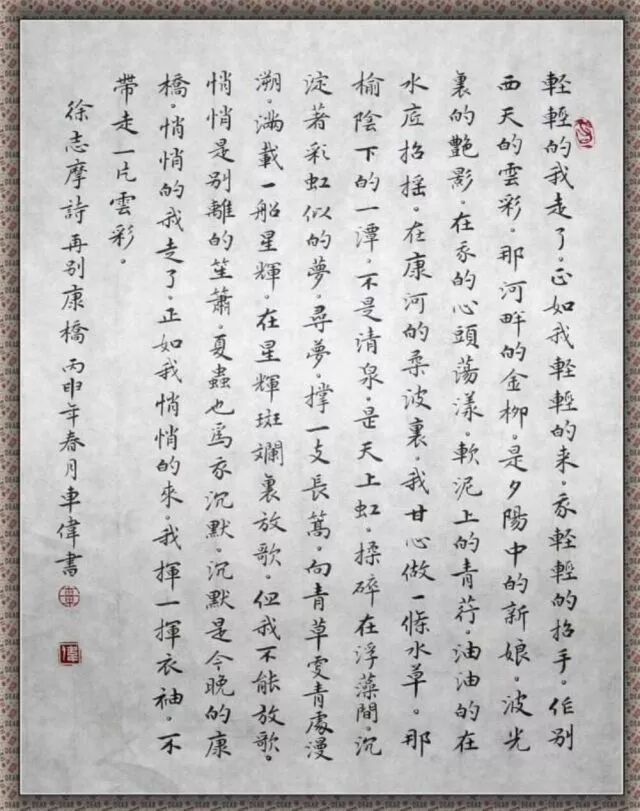 輕輕的我走了。正如我輕輕的来。我輕輕的招手。作别
西天的雲彩。那河畔的金柳。是夕陽中的新娘。波光
裏的艷影。在我的心頭蕩漾。軟泥上的青荇。油油的在
水底招摇。在康河的柔波裏。我甘心做一條水草。那
榆陰下的一潭。不是清泉。是天上虹。揉碎在浮藻間。沉
淀著彩虹似的夢。尋夢。撑一支長篙。向青草更青處漫
溯。滿載一船星輝。在星輝斑斕裏放歌。但我不能放歌。
悄悄是别離的笙簫。夏蟲也爲我沉默。沉默是今晚的康
橋。悄悄的我走了。正如我悄悄的來。我揮一揮衣袖。不
帶走一片雲彩。
徐志摩詩再别康橋 丙申年春月車偉書
車
偉